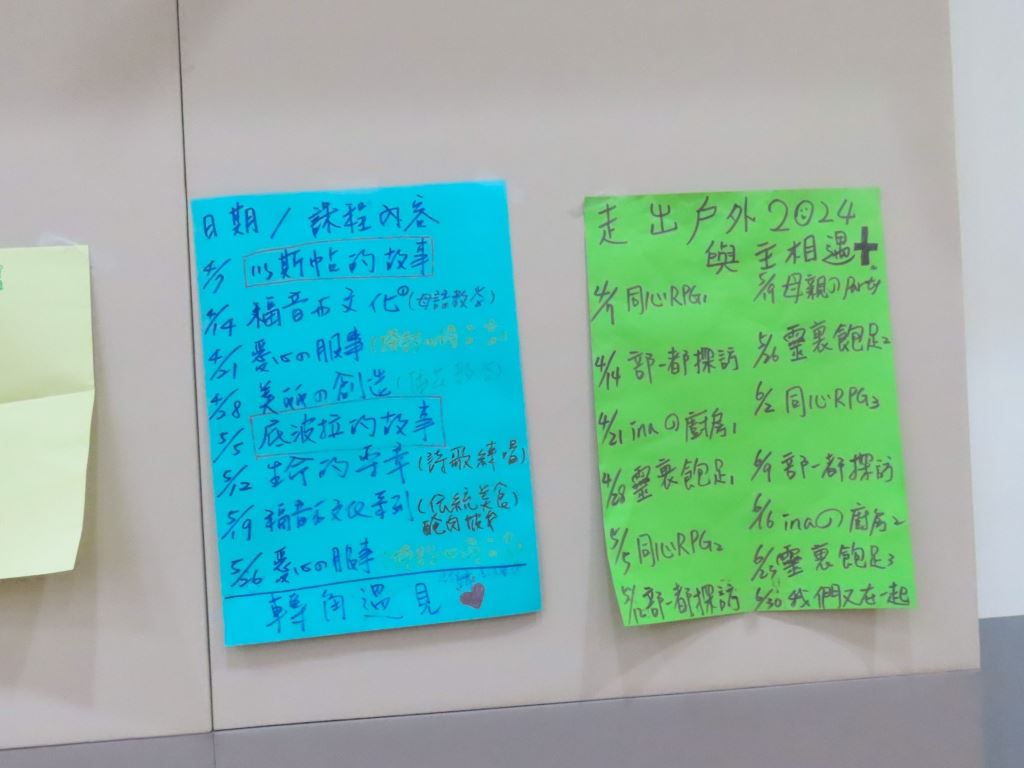 日期 / 課程內容
4/7 以斯帖的故事
4/14 福音與文化①(母語教學)
4/21 愛心の服事
4/28 美術の創造
5/5 底波拉的故事
5/12 生命的學章(詩歌練唱)
5/19 福音文化系列(傳統美食
醃肉
5/26 愛心の服事
轉角遇見
走出戶外2024
與主相遇
4/7 同心RPG1
4/14 部一都探訪
4/21 inaの廚房1
4/28 靈裏飽足1
5/5 同心RPG2
5/12 部一都探訪
5/19 母親のParty
5/26 靈裏飽足2
6/2 同心RPG3
6/9 部一都探訪
6/16 inaの廚房2
6/23 靈裏飽足3
6/30 我們又在一起